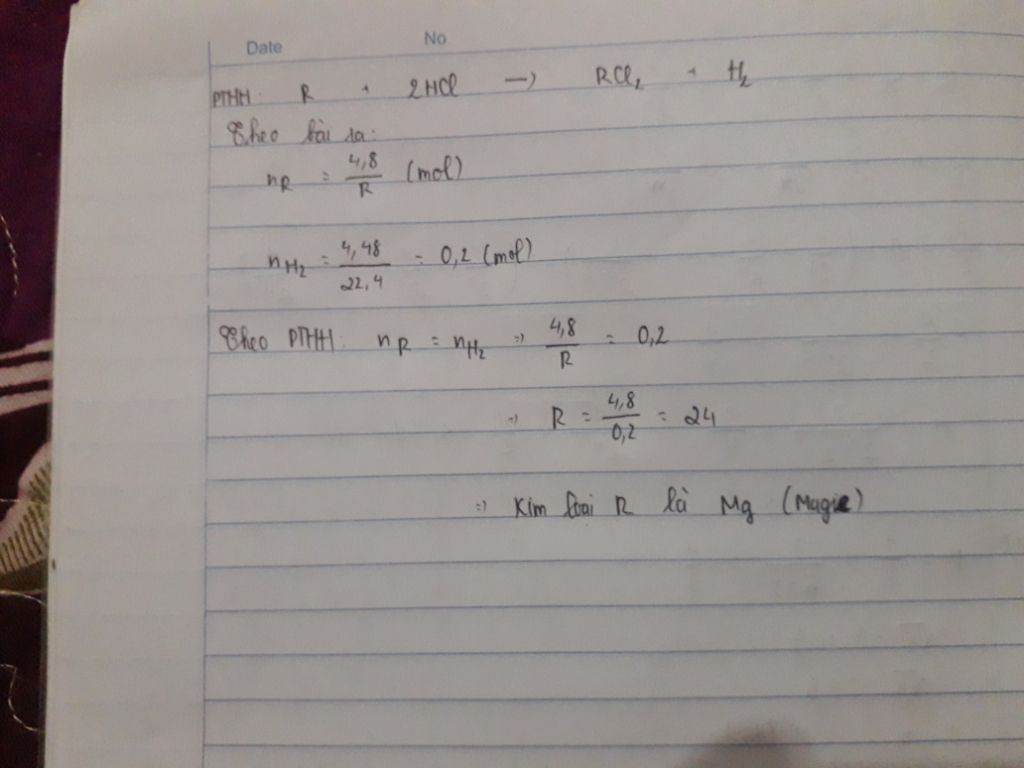 Date No
PTHH: R + 2HCl → RCl₂ + H₂
Theo bài ra:
nR = 4,8/R (mol)
nH₂ = 4,48/22,4 = 0,2 (mol)
Theo PTHH: nR = nH₂ => 4,8/R = 0,2
=> R = 4,8/0,2 = 24
=> Kim loại R là Mg (Magie)